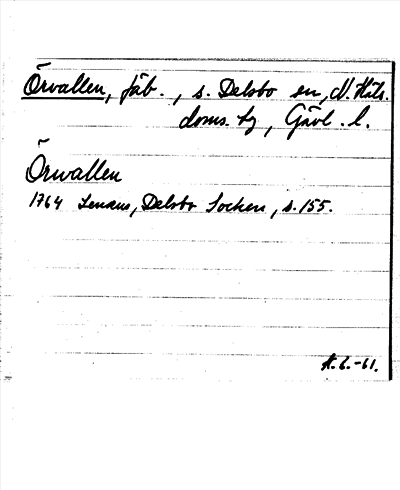 Örvallen, fäb., s. Delsbo sn, N. Häls.
doms. tg, Gävl. l.
Örwallen
1764 Lenæus, Delsbo Socken, s. 155.
K.L.-61.